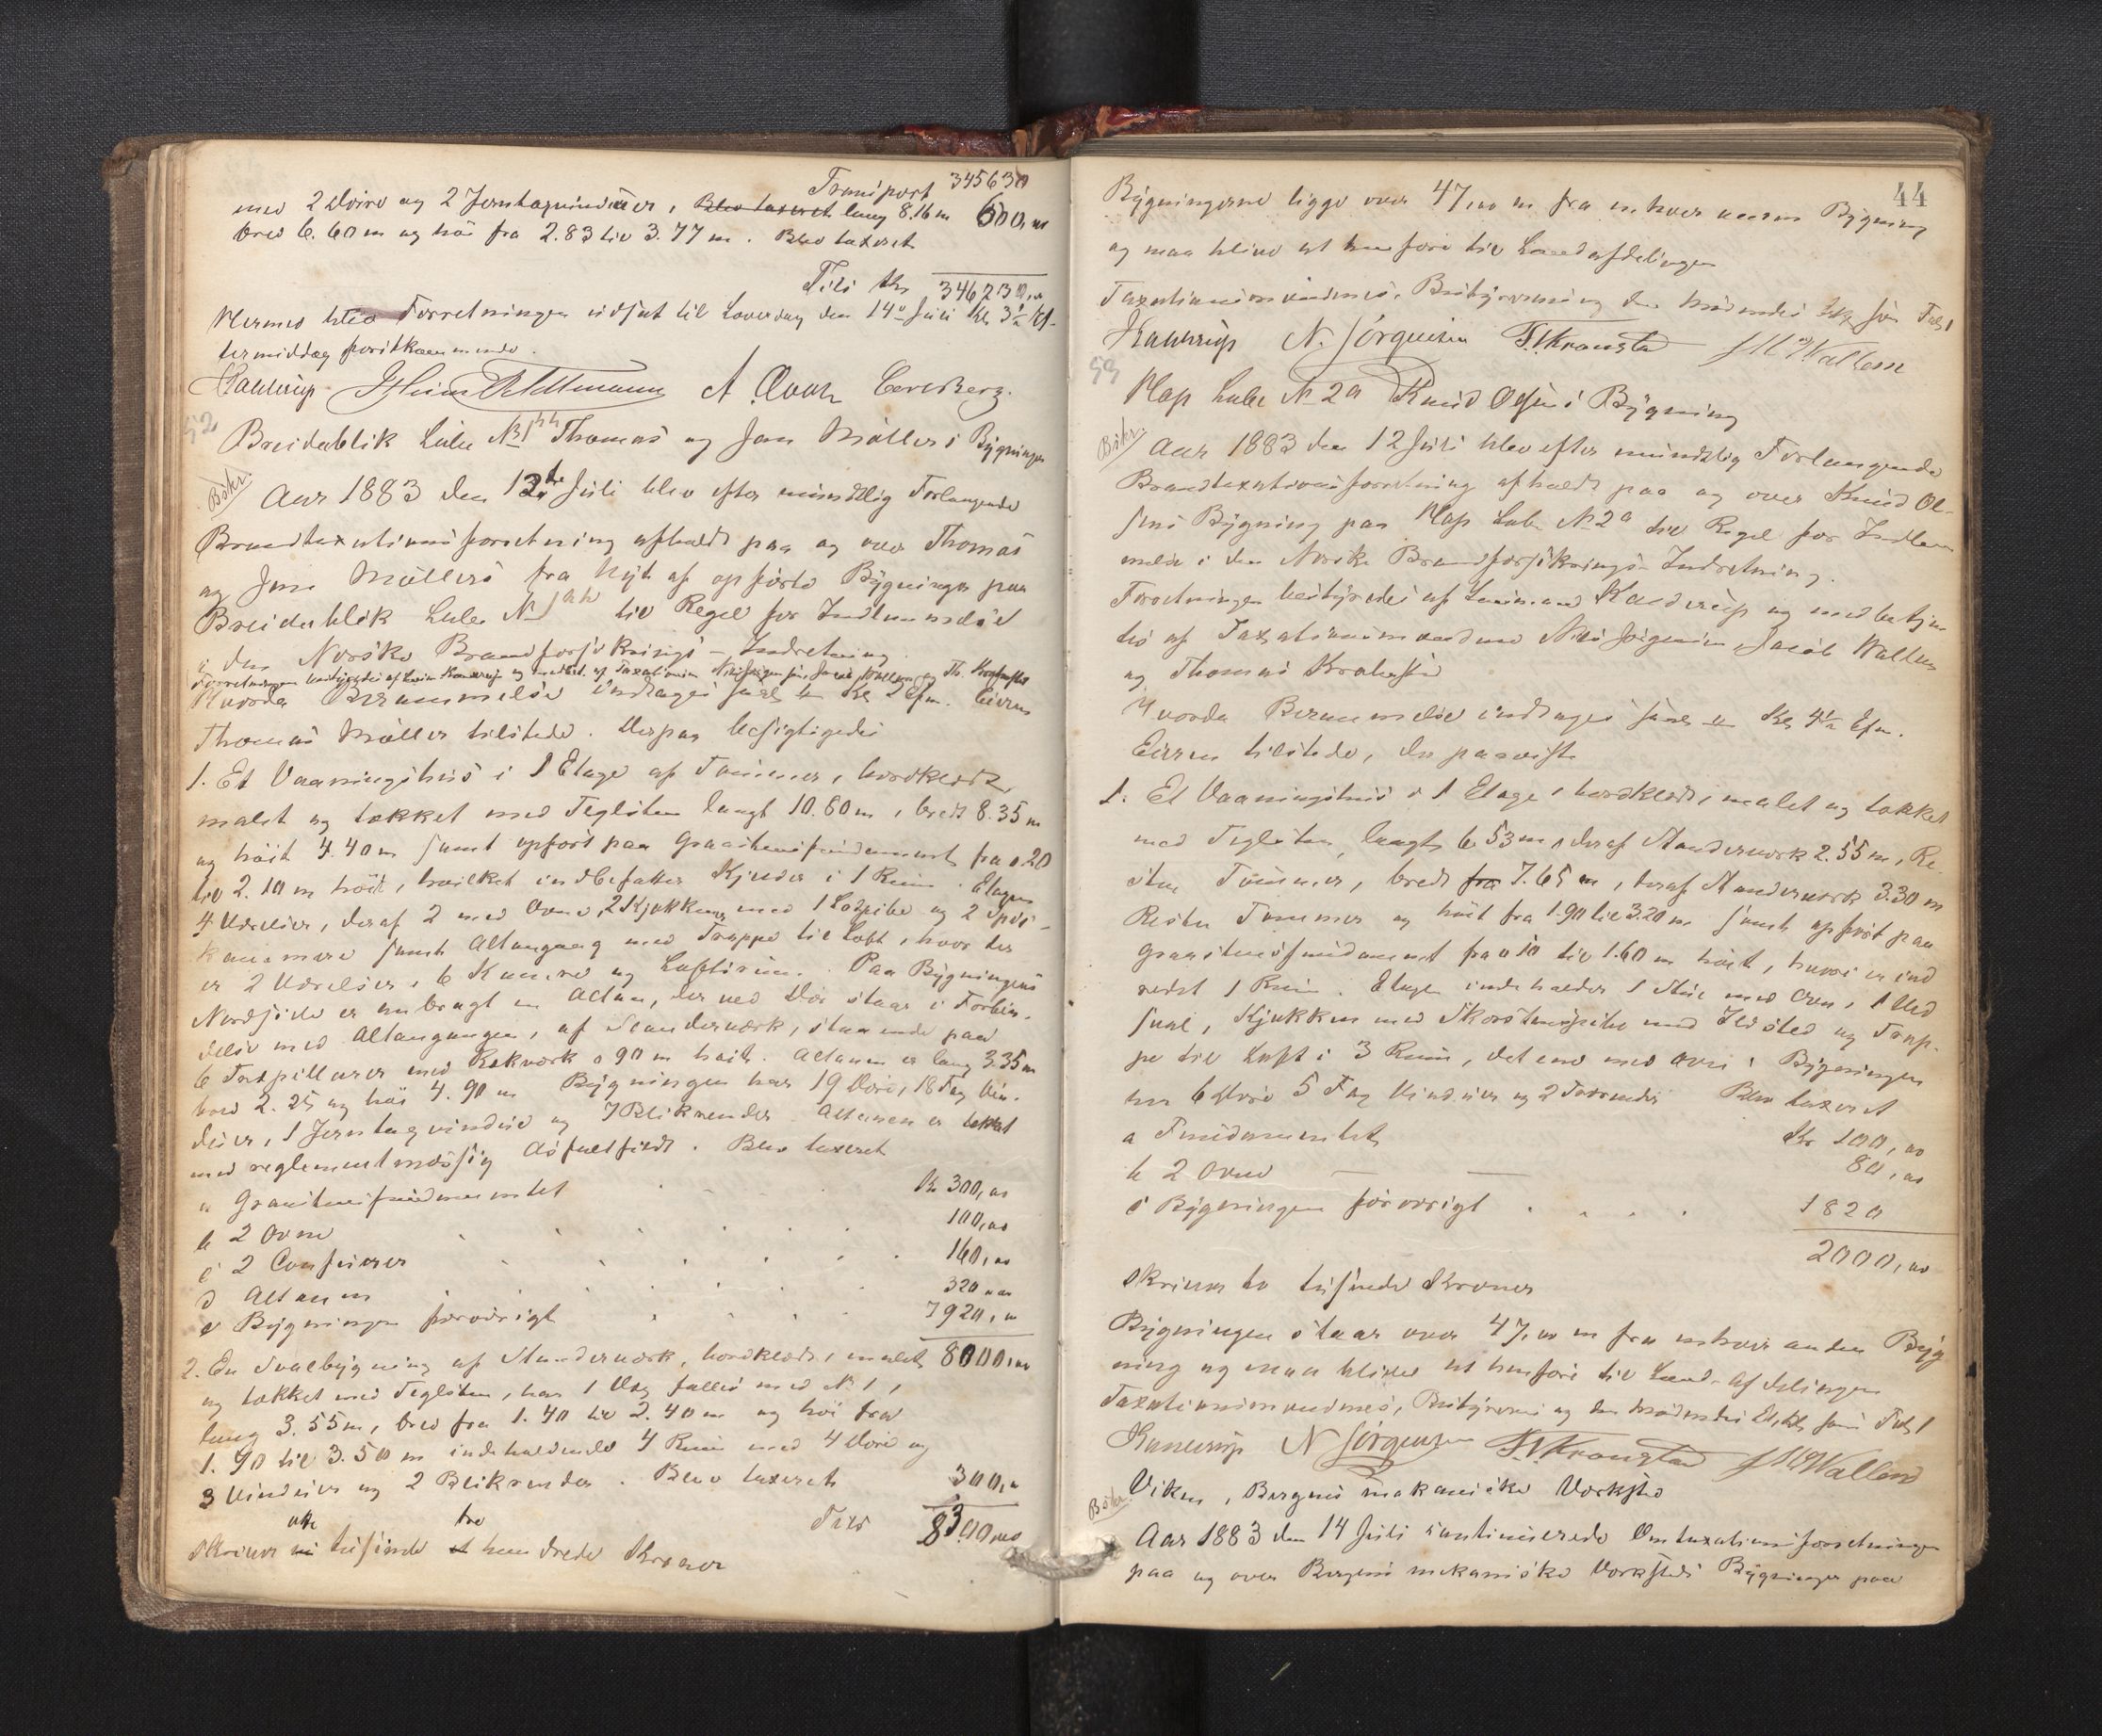 Transport 345630
med 2 Døre og 2 Jerntagvinduer, Blev taxeret lang 8.16 m 600,00
bred 6.60 m og høi fra 2.83 til 3.77 m. Blev taxeret
Tils Kr 346230,00
Hermed blev Forretningen udsat til Løverdag den 14de Juli Kl 3½ Ef-
termiddag førstkommende.
Kaurup A. Carl Berg.
52
Breidablik Lube № 1 Thomas og Jens Møllers Bygninger
Bskr.
Aar 1883 den 12te Juli blev efter mundtlig Forlangende
Brandtaxationsforretning afholdt paa og over Thomas
og Jens Møllers fra Nyt af opførte Bygninger paa
Breidablik Lube № til Regel for Indlemmelse
i den Norske Brandforsikrings-Indretning.
Forretningen bestyredes af Lensm Kaurup og Taxationsm Nils Jørgensen, Jacob Wallem og Th. Kronstad
Hvorda Berammelse indtages Kl 2 Efm. Eieren
Thomas Møller tilstede. Derpaa besigtigedes
1. Et Vaaningshus i 1 Etage af Tømmer, bordklædt,
malet og tækket med Teglsten langt 10.60 m, bredt 8.35 m
og høit 4.40 m samt opført paa Graastensfundament fra 0 20
til 2.10 m høit, hvilket indbefatter Kjælder i 1 Rum. Etagen
4 Værelser, deraf 2 med Ovne, 2 Kjøkkener med 1 Løspibe og 2 Spis-
kammere samt Altangang med Trappe til Loft, hvor der
er 2 Værelser, 6 Kamre og Loftsrum. Paa Bygningens
Nordside er anbragt en Altan, der ved Dør staar i Forbin-
delse med Altangangen, af Standerværk, staaende paa
6 Træpillarer med Rekværk 0 90 m høit. Altanen er lang 3.35 m
bred 2.25 og høi 4.90 m Bygningen har 19 Døre, 18 Fag Vin-
duer, 1 Jerntagvindue og 7 Blikrender Altanen er tækket
med reglementmæssig Asfaltfilt. Blev taxeret
a Graastensfundamentet Kr 300,00
b 2 Ovne 100,00
c 2 Comfurer 160,00
d Altanen 320,00
e Bygningen forøvrigt 7920,00
2. En Svalbygning af Standerværk, bordklædt, malet 8000,00
og tækket med Teglsten, har 1 Væg fælles med № 1,
lang 3.55 m, bred fra 1.40 til 2.40 m og høi fra
1.90 til 3.50 m indeholdende 4 Rum med 4 Døre og
3 Vinduer og 2 Blikrender. Blev taxeret 300,00
Tils 8300,00
otte tre
skriver ni tusinde et hundrede Kroner
44
Bygningerne ligge over 47,00 m fra enhver anden Bygning
og maa blive at henføre til Landafdelingen
Taxationsmændenes, Bestyrerens og den mødendes som Fol 1
Kaurup N. Jørgensen T. Kronstad J M Wallem
53
Hop Lube № 2a Knud Olsens Bygning
Bskr.
Aar 1883 den 12 Juli blev efter mundtlig Forlangende
Brandtaxationsforretning afholdt paa og over Knud Ol-
sens Bygning paa Hop Lube № 2a til Regel for Indlem
melse i den Norske Brandforsikrings-Indretning.
Forretningen bestyredes af Lensmand Kaurup og medbetjen
tes af Taxationsmændene Nils Jørgensen, Jacob Wallem
og Thomas Kronstad
Hvorda Berammelse indtages Kl 4½ Efm.
Eieren tilstede, der paaviste
1. Et Vaaningshus i 1 Etage, bordklædt, malet og tækket
med Teglsten, langt 6.53 m, deraf Standerværk 2.55 m, Re-
sten Tømmer, bredt fra 7.65 m, deraf Standerværk 3.30 m
Resten Tømmer og høit fra 1.90 til 3.20 m samt opført paa
Graastensfundament fra 0 10 til 1.60 m høit, hvori er ind
redet 1 Rum. Etagen indeholder 1 Stue med Ovn, 1 Ved
sval, Kjøkken med Skorstenspibe med Ildsted og Trap-
pe til Loft i 3 Rum, det ene med Ovn. Bygningen
har 6 Døre 5 Fag Vinduer og 2 Trærender Blev taxeret
a Fundamentet Kr 100,00
b 2 Ovne 80,00
c Bygningen forøvrigt 1820
2000,00
skriver to tusinde Kroner
Bygningen staar over 47,00 m fra enhver anden Byg
ning og maa blive at henføre til Land-afdelingen
Taxationsmændenes, Bestyrerens og den mødendes som Fol 1
Kaurup N Jørgensen T. Kronstad J M Wallem
Bskr.
Viken, Bergens mekaniske Værksted
Aar 1883 den 14 Juli continuerede Omtaxationsforretningen
paa og over Bergens mekaniske Værksteds Bygninger paa